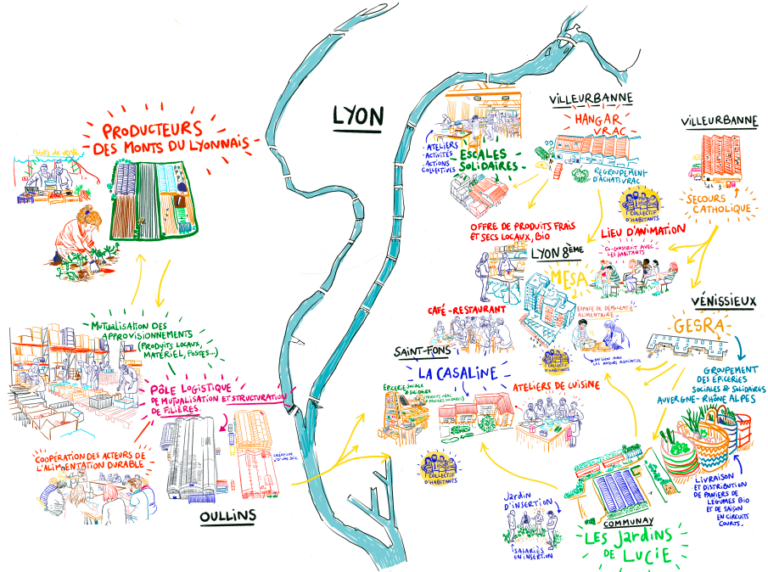 LYON
PRODUCTEURS
DES MONTS DU LYONNAIS
MUTUALISATION DES
APPROVISIONNEMENTS
(PRODUITS LOCAUX,
MATÉRIEL, FOSSES...)
PÔLE LOGISTIQUE
DE MUTUALISATION ET STRUCTURATION
DE FILIÈRES
COOPÉRATION DES ACTEURS DE
L'ALIMENTATION DURABLE
OULLINS
ATELIERS
- ACTIVITÉS
- ACTIONS
COLLECTIVES
ESCALES
SOLIDAIRES
VILLEURBANNE
HANGAR
VRAC
REGROUPEMENT
D'ACHAT VRAC
VILLEURBANNE
SECOURS
CATHOLIQUE
1 COLLECTIF
D'HABITANTS
OFFRE DE PRODUITS FRAIS
ET SECS LOCAUX, BIO
LYON 8ÈME
MESA
LIEU D'ANIMATION
CO-CONSTRUIT AVEC
LES HABITANTS
ESPACE DE DÉMOCRATIE
ALIMENTAIRE
CAFÉ-RESTAURANT
1 COLLECTIF
D'HABITANTS
VÉNISSIEUX
GESRA
GROUPEMENT
DES ÉPICERIES
SOCIALES & SOLIDAIRES
AUVERGNE-RHÔNE ALPES
SAINT-FONS
LA CASALINE
ÉPICERIE SOCIALE
& SOLIDAIRE
ATELIERS DE CUISINE
1 COLLECTIF
D'HABITANTS
JARDIN
D'INSERTION
SALARIÉS
EN INSERTION
COMMUNAY
LES JARDINS
DE LUCIE
LIVRAISON
ET DISTRIBUTION
DE PANIERS DE
LÉGUMES BIO
ET DE SAISON
EN CIRCUITS
COURTS.